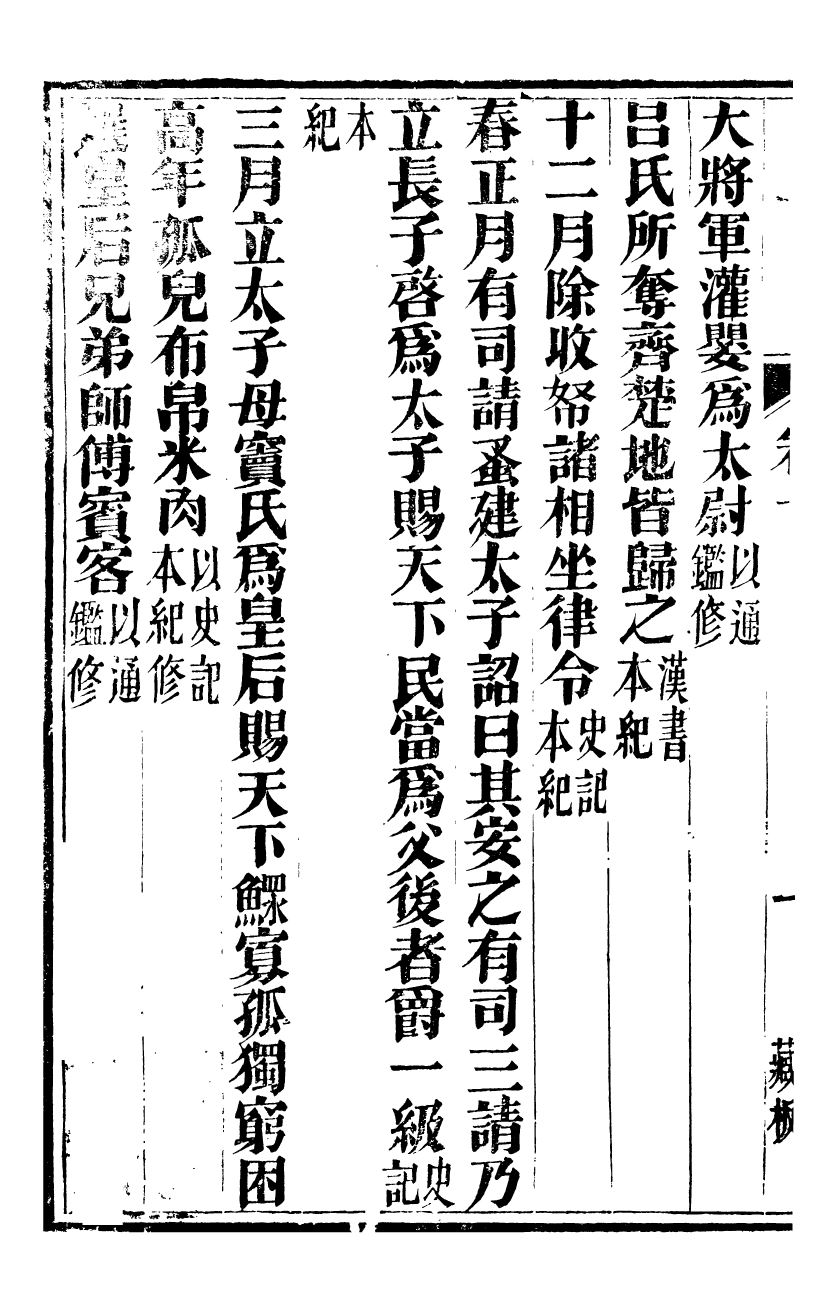 大將軍灌嬰爲太尉以通鑑修
呂氏所奪齊楚地皆歸之漢書本紀
十二月除收帑諸相坐律令史記本紀
春正月有司請蚤建太子詔曰其安之有司三請乃
立長子啓爲太子賜天下民當爲父後者爵一級史記
本紀
三月立太子母竇氏爲皇后賜天下鰥寡孤獨窮困
高年孤兒布帛米肉以史記本紀修
選皇后兄弟師傅賓客以通鑑修
一
藏板